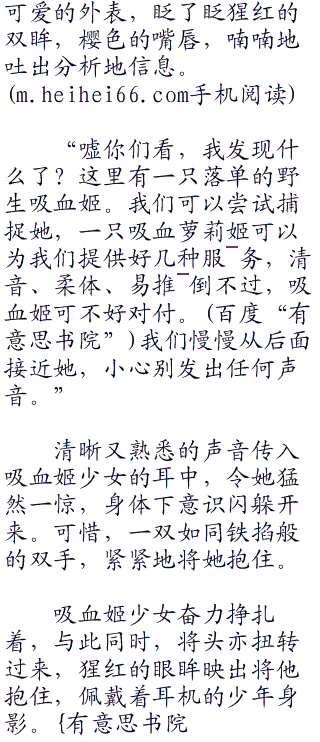 可爱的外表，眨了眨猩红的
双眸，樱色的嘴唇，喃喃地
吐出分析地信息。
(m.heihei66.com手机阅读)
“嘘你们看，我发现什
么了？这里有一只落单的野
生吸血姬。我们可以尝试捕
捉她，一只吸血萝莉姬可以
为我们提供好几种服¯务，清
音、柔体、易推¯倒不过，吸
血姬可不好对付。(百度“有
意思书院”)我们慢慢从后面
接近她，小心别发出任何声
音。”
清晰又熟悉的声音传入
吸血姬少女的耳中，令她猛
然一惊，身体下意识闪躲开
来。可惜，一双如同铁掐般
的双手，紧紧地将她抱住。
吸血姬少女奋力挣扎
着，与此同时，将头亦扭转
过来，猩红的眼眸映出将他
抱住，佩戴着耳机的少年身
影。{有意思书院